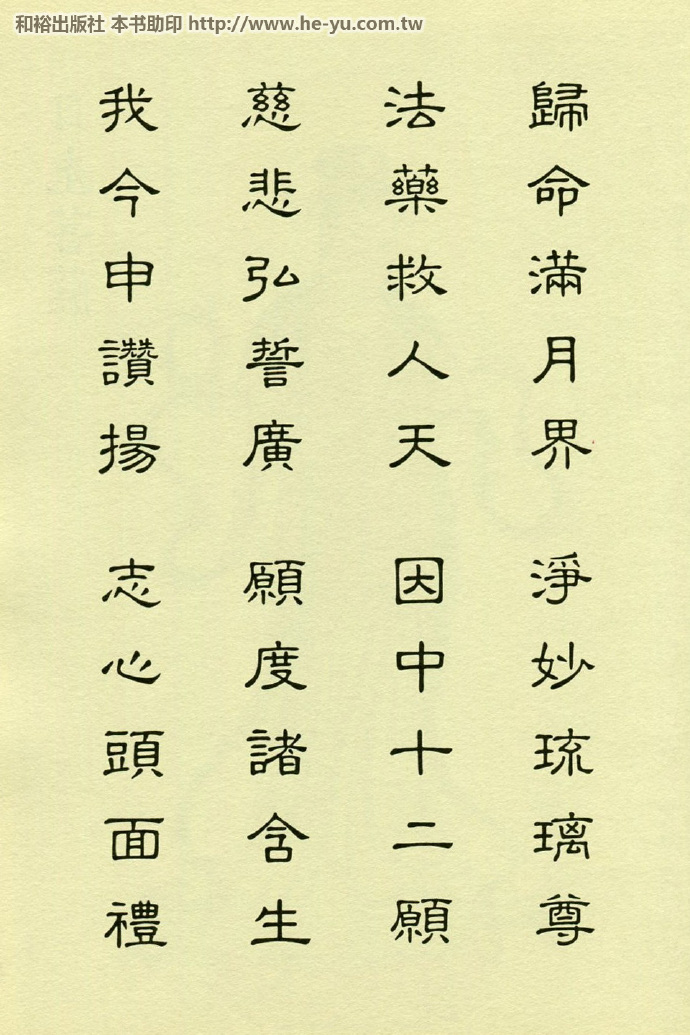 和裕出版社 本书助印 http://www.he-yu.com.tw
歸命滿月界 淨妙琉璃尊
法藥救人天 因中十二願
慈悲弘誓廣 願度諸含生
我今申讚揚 志心頭面禮